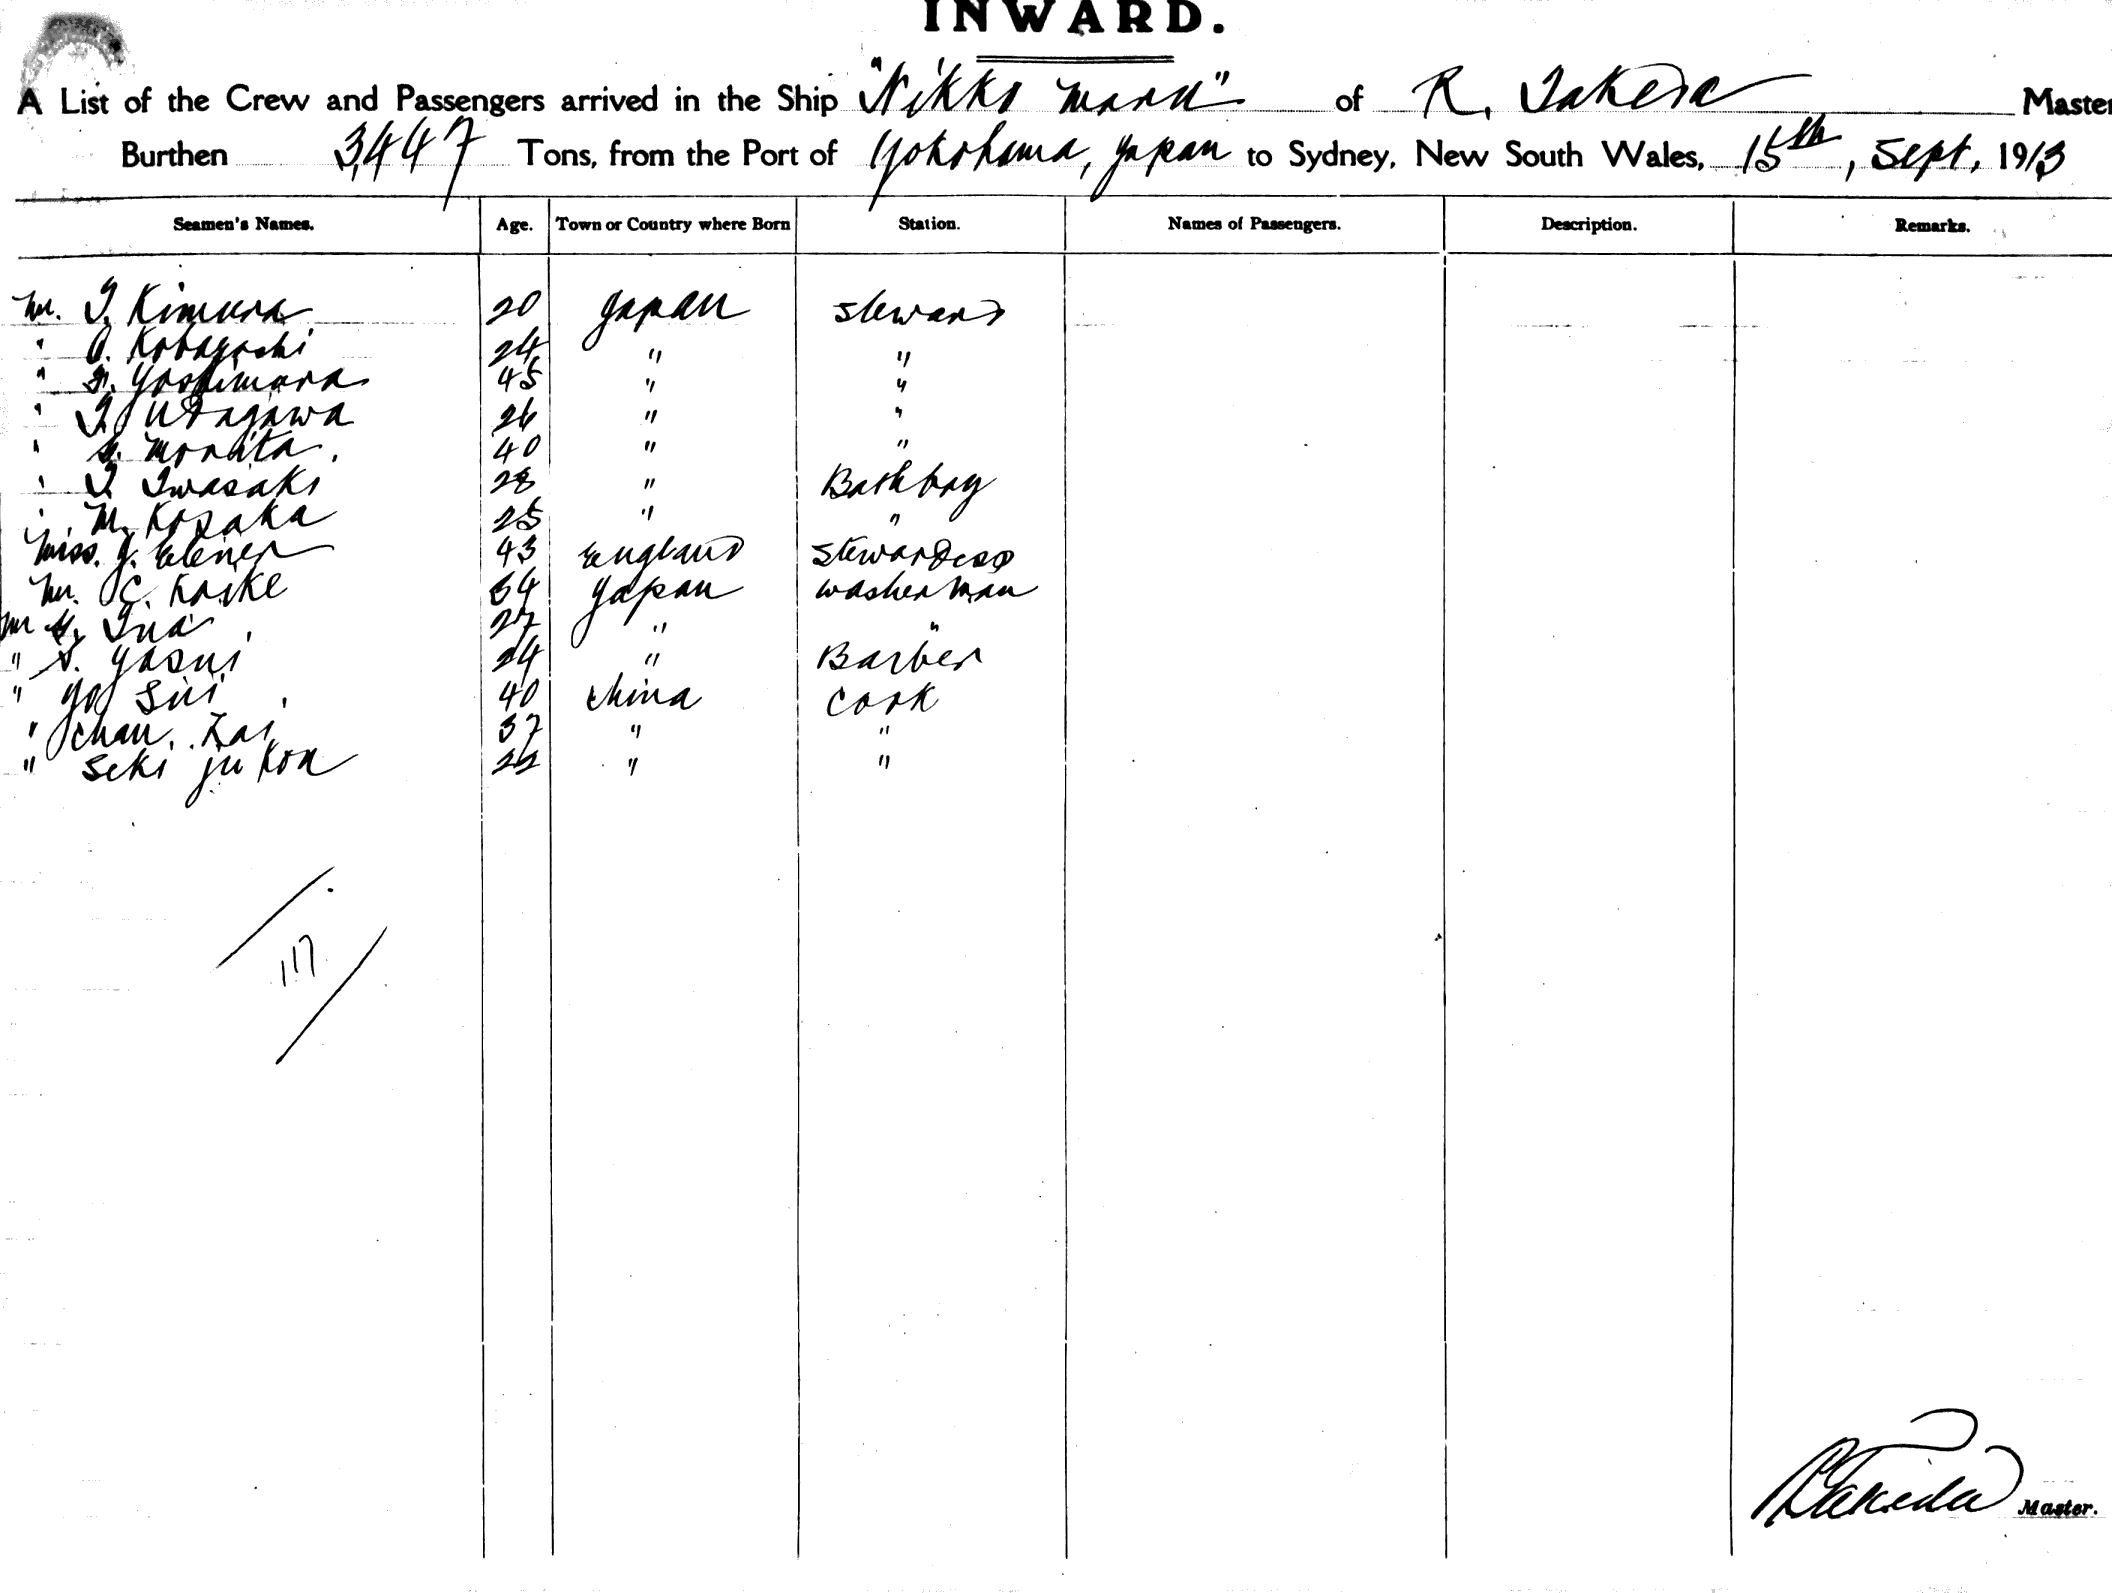 INWARD.
A List of the Crew and Passengers arrived in the Ship "Nikko Maru" of R. Takeda Master
Burthen 3,447 Tons, from the Port of Yokohama, Japan to Sydney, New South Wales, 15th, Sept, 1913
Seamen's Names. Age. Town or Country where Born Station. Names of Passengers. Description. Remarks.
Mr. T. Kimura 20 Japan Steward
" Kobayashi 24 " "
" Yoshimura 45 " "
" T. Utagawa 26 " "
" Morita. 40 " "
" T. Iwasaki 28 " Bathboy
" M. Kosaka 25 " "
Miss. J. 43 England Stewardess
Mr. C. Koike 34 Japan Washerman
Mr 27 " "
" S. Yasui 24 " Barber
" Yo Sui 40 China Cook
" Chan. Kai 37 " "
" Seki Ju Koa 22 " "
117
R Takeda Master.